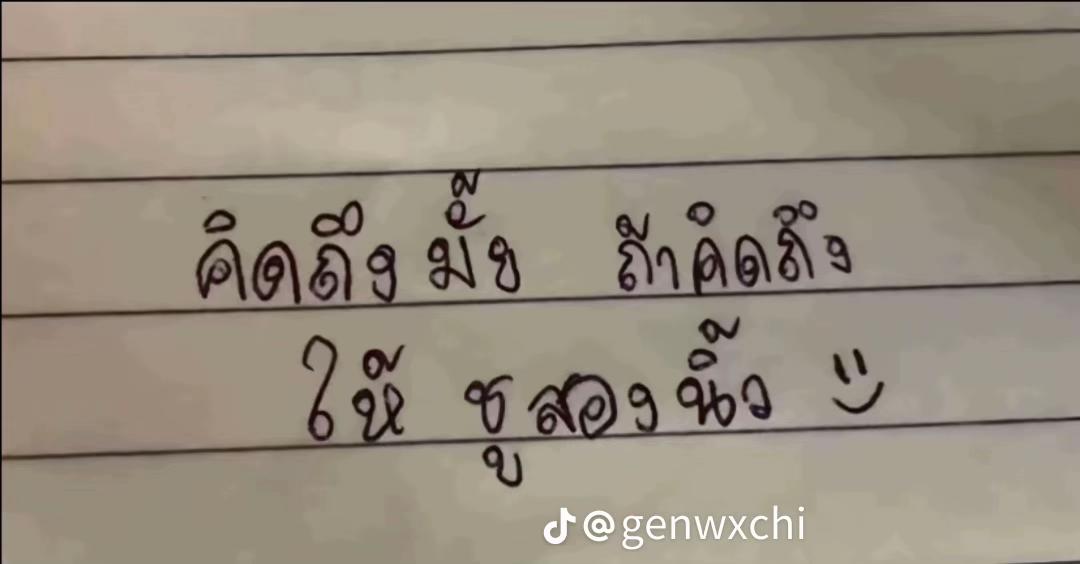 คิดถึงมั๊ย ถ้าคิดถึง
ให้ ชูสองนิ้ว
@genwxchi